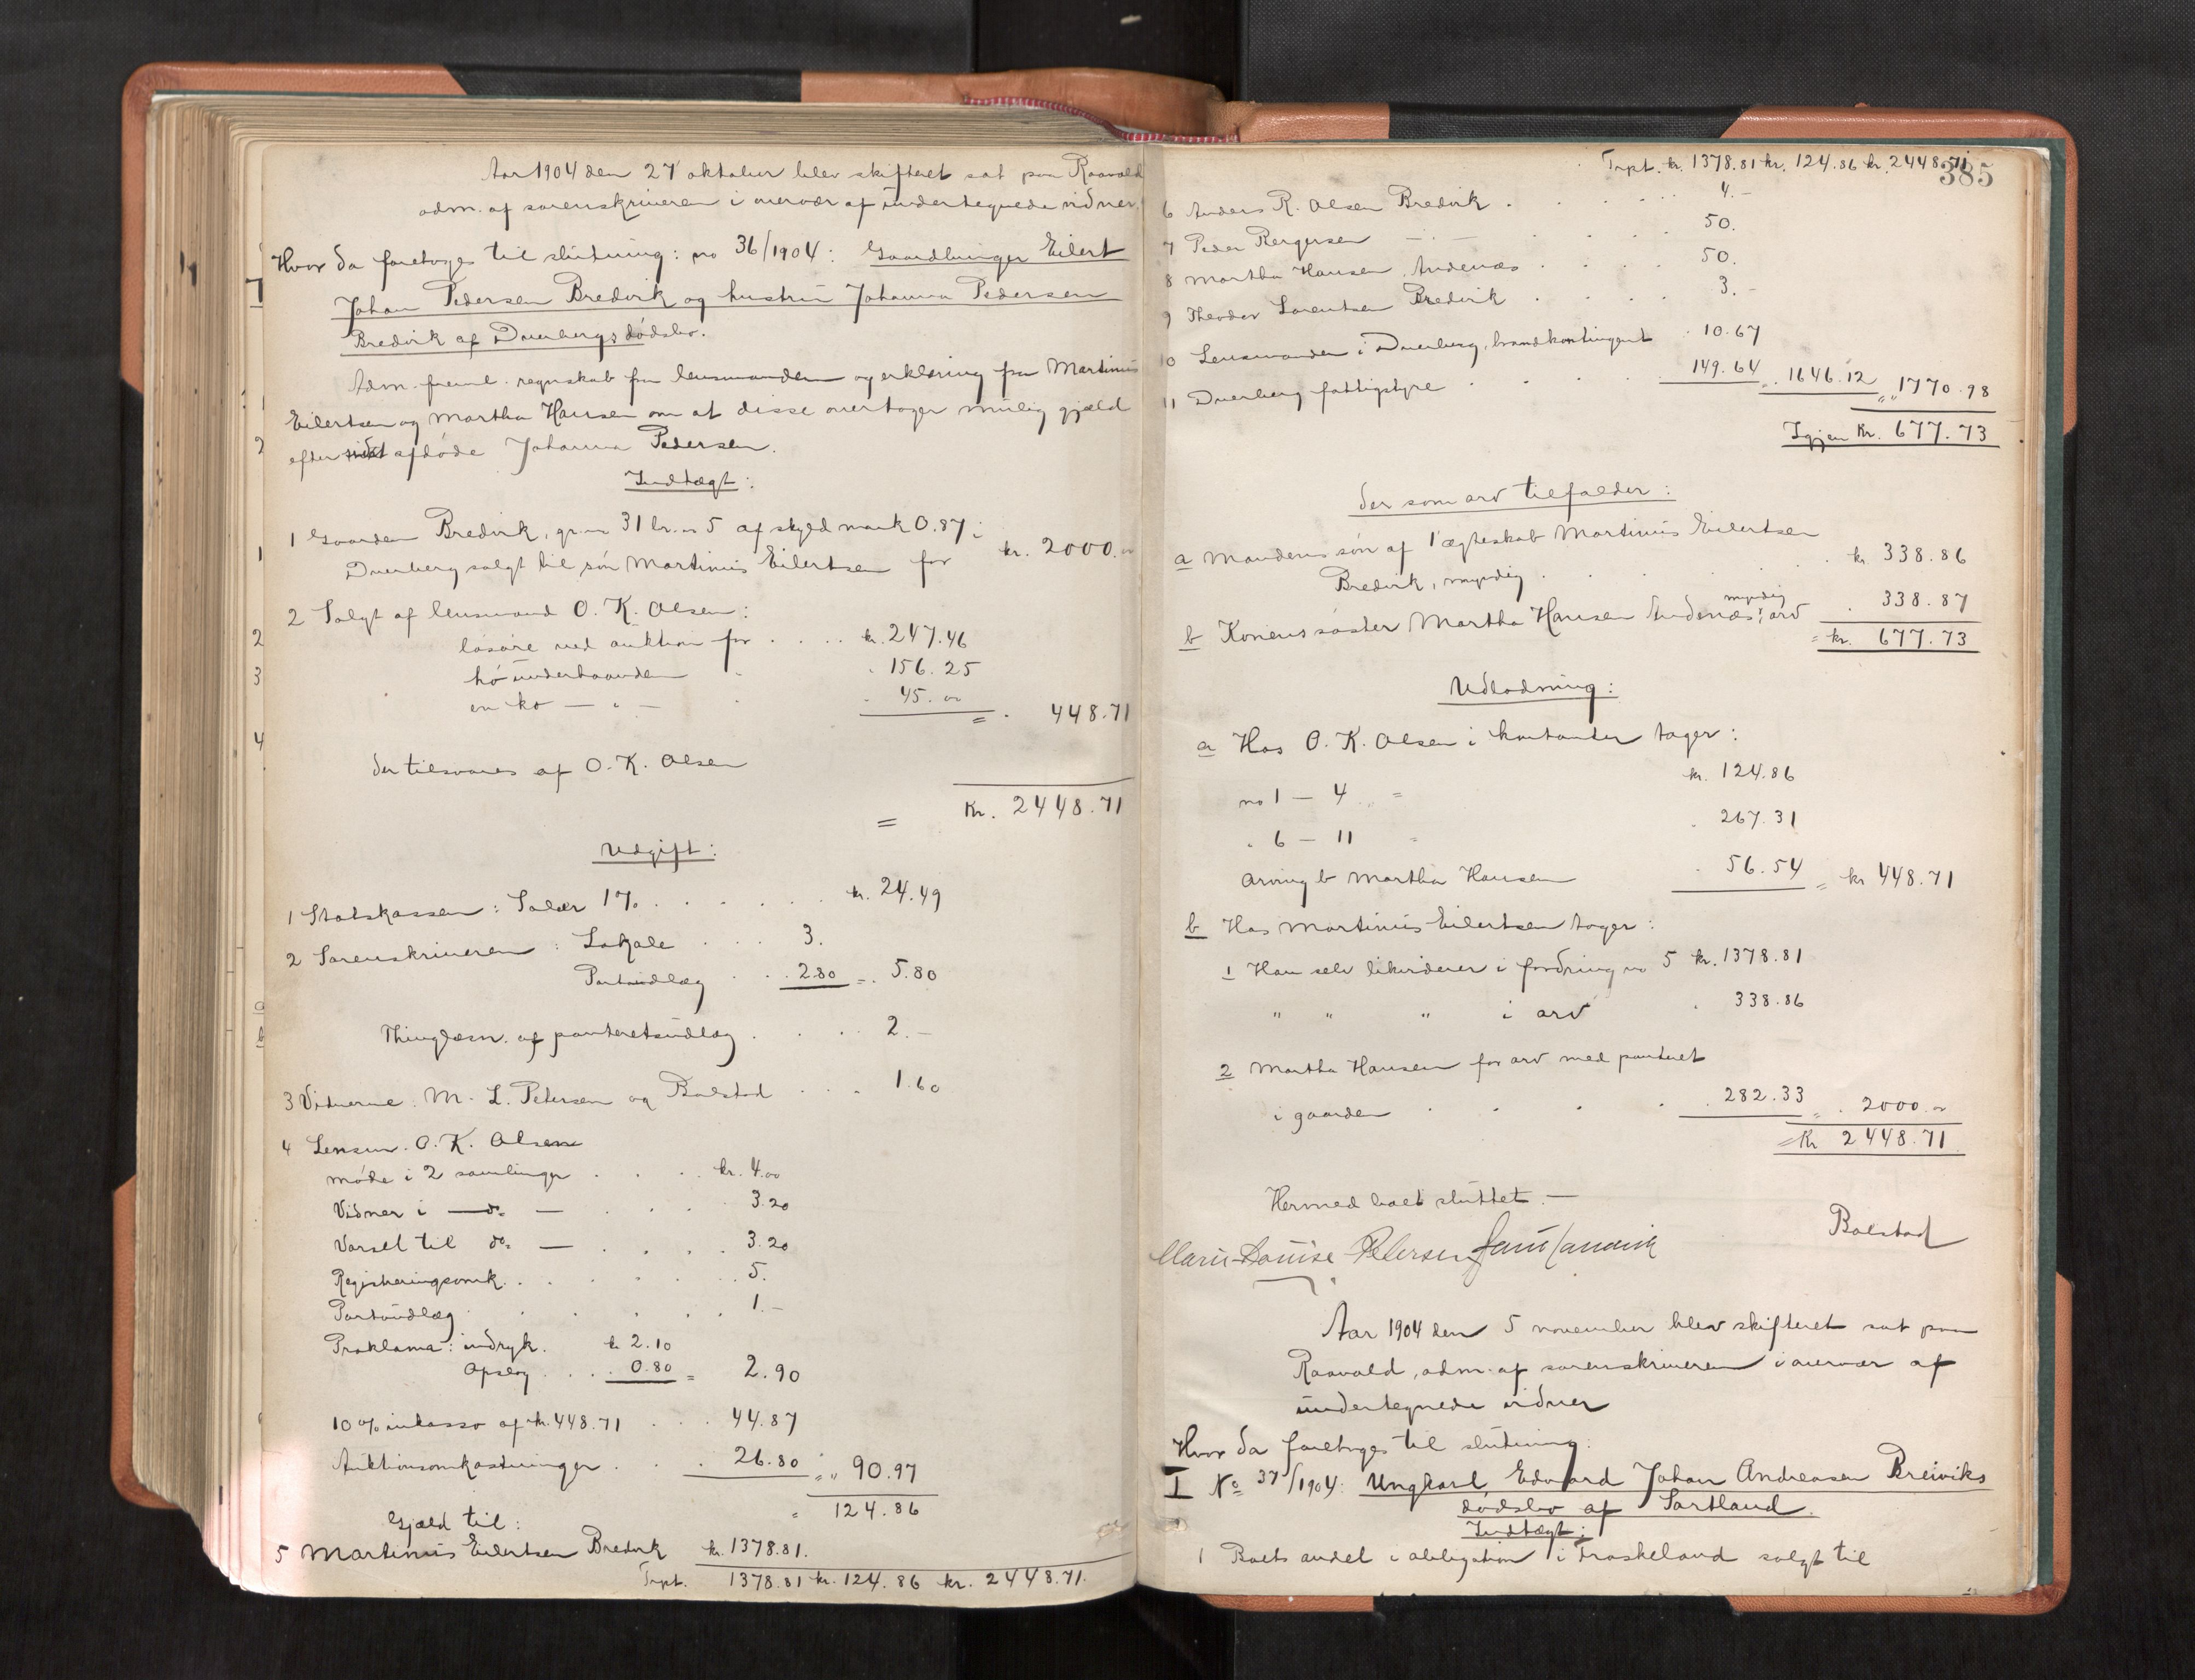 Aar 1904 den 27 oktober blev skifteret sat paa Raavold
adm. af sorenskriveren i overvær af undertegnede vidner.
Hvor da foretoges til slutning: no 36/1904: Gaardbruger Eilert
Johan Pedersen Bredvik og hustru Johanna Pedersen
Bredvik af Dverbergs dødsbo.
Adm. freml. regnskab fra lensmanden og erklæring fra Martinus
Eilertsen og Martha Hansen om at disse overtager mulig gjæld
efter sidst afdøde Johanna Pedersen.
Indtægt:
1 Gaarden Bredvik, gr. no 31 br. no 5 af skyld mark 0.87 i
Dverberg solgt til søn Martinus Eilertsen for kr. 2000.00
2 Solgt af lensmand O. K. Olsen:
løsøre ved auktion for . . . . kr. 247.46
hø underhaanden " 156.25
en ko — " — . 45.00 = . 448.71
der tilsvares af O. K. Olsen
= Kr. 2448.71
Udgift:
1 Statskassen: Salær 1% . . . . . . kr. 24.49
2 Sorenskriveren: Lokale . . . 3.
Portoudlæg . . . 2.80 = . 5.80
Thinglæsn. af panteretsudlæg . . . . 2.—
3 Vidnerne M. L. Petersen og Bolstad . . . 1.60
4 Lensm. O. K. Olsen
møde i 2 samlinger . . . . kr. 4.00
Vidner i — do — . . . . 3.20
Varsel til do — . . . . 3.20
Registreringsomk. . . . . . . 5.
Portoudlæg . . . . . 1.—
Proklama: indryk. kr 2.10
Opslag . . . . 0.80 = 2.90
10 % inkasso af kr. 448.71 . . . 44.87
Auktionsomkostninger . . . 26.80 = " 90.97
= 124.86
Gjæld til:
5 Martinus Eilertsen Bredvik kr. 1378.81.
Trpt. 1378.81 kr. 124.86 kr. 2448.71.
385
Trpt. kr. 1378.81 kr. 124.86 kr. 2448.71
6 Anders R. Olsen Bredvik . . . . . 4.—
7 Peder Bergersen — " — . . . . 50.
8 Martha Hansen Andenæs . . . . 50.
9 Theodor Lorentsen Bredvik . . . . 3.—
10 Lensmanden i Dverberg, brandkontingent . 10.67
11 Dverberg fattigstyre . . . . 149.64 = . 1646.12 " " 1770.98
Igjen Kr. 677.73
der som arv tilfalder:
a Mandens søn af 1 ægteskab Martinus Eilertsen
Bredvik, myndig . . . . . kr. 338.86
b Konens søster Martha Hansen Andenæs, myndig arv . 338.87
= kr. 677.73
Udlodning:
a Hos O. K. Olsen i kontanter tager:
no 1 — 4 " = kr. 124.86
" 6 — 11 = . 267.31
Arving b Martha Hansen . 56.54 = kr 448.71
b Hos Martinus Eilertsen tager:
1 Han selv likviderer i fordring no 5 kr. 1378.81
" " " i arv . 338.86
2 Martha Hansen for arv med panteret
i gaarden . . . . . 282.33 = . 2000.00
= Kr 2448.71
Hermed boet sluttet. —
Bolstad
Marie Louise Petersen
Aar 1904 den 5 november blev skifteret sat paa
Raavold, adm. af sorenskriveren i overvær af
undertegnede vidner
Hvor da foretoges til slutning:
I No 37/1904: Ungkarl Edvard Johan Andreasen Breiviks
dødsbo af Sortland.
Indtægt:
1 Boets andel i obligation i Traskeland solgt til